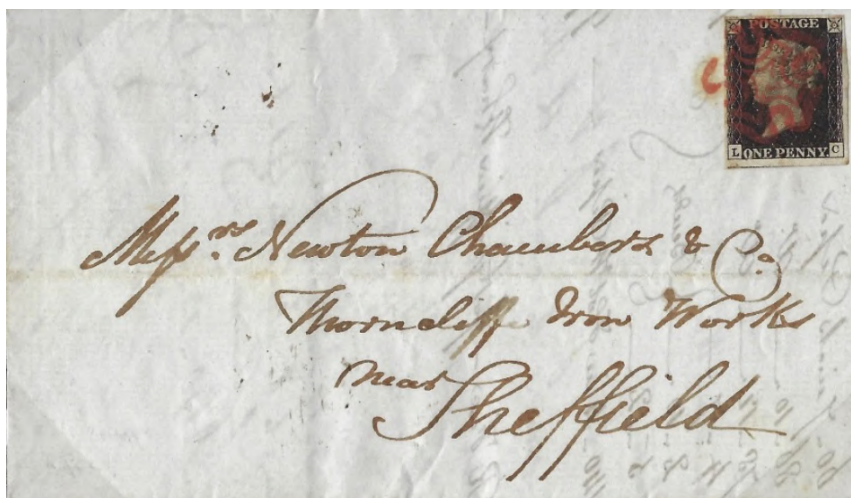 POSTAGE
L ONE PENNY. C
Messrs. Newton Chambers & Co.
Thorncliffe Iron Works
near
Sheffield